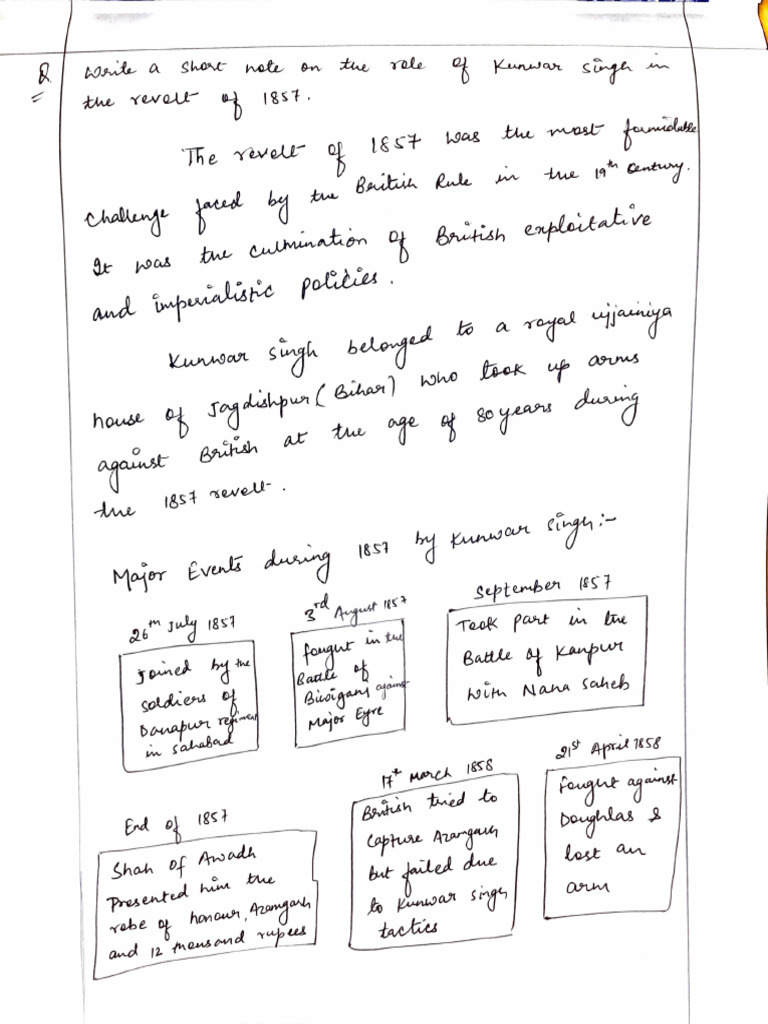 Q Write a short note on the role of Kunwar Singh in
the revolt of 1857.
The revolt of 1857 was the most formidable
challenge faced by the British Rule in the 19th century.
It was the culmination of British exploitative
and imperialistic policies.
Kunwar Singh belonged to a royal ujjainiya
house of Jagdishpur (Bihar) who took up arms
against British at the age of 80 years during
the 1857 revolt.
Major Events during 1857 by Kunwar Singh:-
26th July 1857
Joined by the
soldiers of
Danapur regiment
in Sahabad
3rd August 1857
fought in the
Battle of
Bibiganj against
Major Eyre
September 1857
Took part in the
Battle of Kanpur
with Nana Saheb
End of 1857
Shah of Awadh
Presented him the
robe of honour, Azamgarh
and 12 thousand rupees
17th March 1858
British tried to
capture Azamgarh
but failed due
to Kunwar Singh
tactics
21st April 1858
Fought against
Doughlas &
lost an
arm